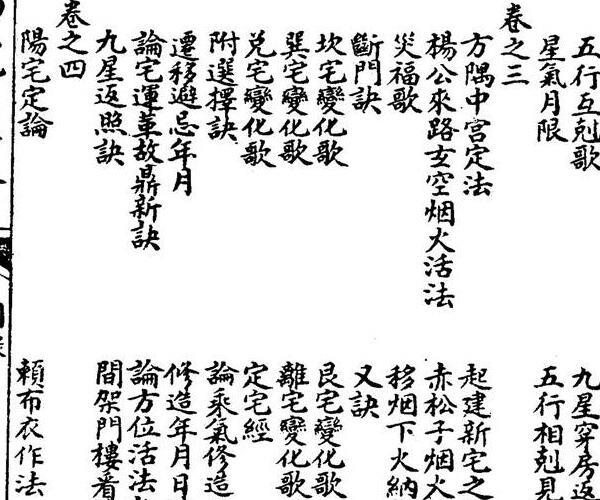 五行互剋歌 九星穿房返
星氣月限 五行相剋見
卷之三
方隅中宮定法 起建新宅之
楊公來路玄空烟火活法 赤松子烟火
災福歌 移烟下火納
斷門訣 又訣
坎宅變化歌 艮宅變化歌
巽宅變化歌 離宅變化歌
兌宅變化歌 定宅經
附選擇訣 論乘氣修造
遷移避忌年月 修造年月日
論宅運革故鼎新訣 論方位活法
九星返照訣 間架門樓看
卷之四
陽宅定論 賴布衣作法